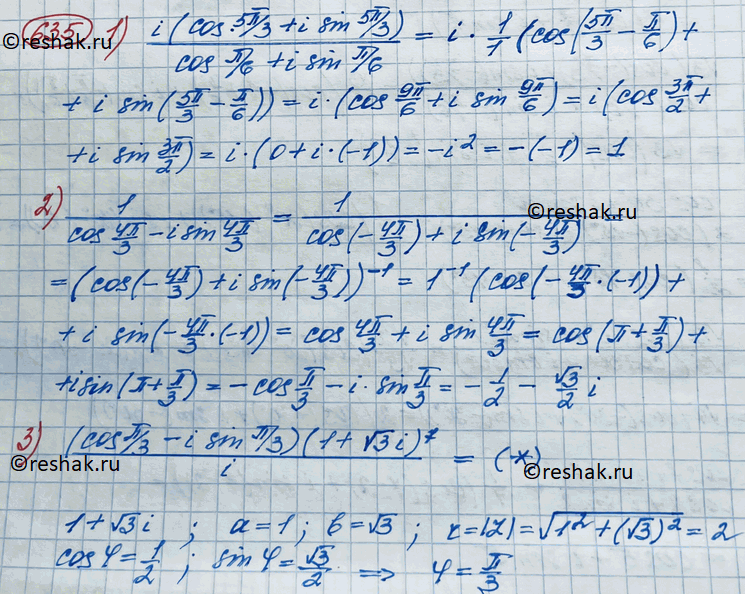 635 1) i(cos 5π/3 + i sin 5π/3) / (cos π/6 + i sin π/6) = i · 1/1 (cos(5π/3 − π/6) +
+ i sin(5π/3 − π/6)) = i·(cos 9π/6 + i sin 9π/6) = i(cos 3π/2 +
+ i sin 3π/2) = i·(0 + i·(−1)) = −i² = −(−1) = 1
reshak.ru
2) 1 / (cos 4π/3 − i sin 4π/3) = 1 / (cos(−4π/3) + i sin(−4π/3)) =
= (cos(−4π/3) + i sin(−4π/3))⁻¹ = 1⁻¹ (cos(−4π/3 · (−1)) +
+ i sin(−4π/3 · (−1)) = cos 4π/3 + i sin 4π/3 = cos(π + π/3) +
+ i sin(π + π/3) = − cos π/3 − i · sin π/3 = −1/2 − √3/2 i
reshak.ru
3) (cos π/3 − i sin π/3)(1 + √3 i)⁷ / i = (*)
reshak.ru
reshak.ru
1 + √3 i ; a = 1 ; b = √3 ; r = |z| = √(1² + (√3)²) = 2
cos φ = 1/2 ; sin φ = √3/2 ⟹ φ = π/3